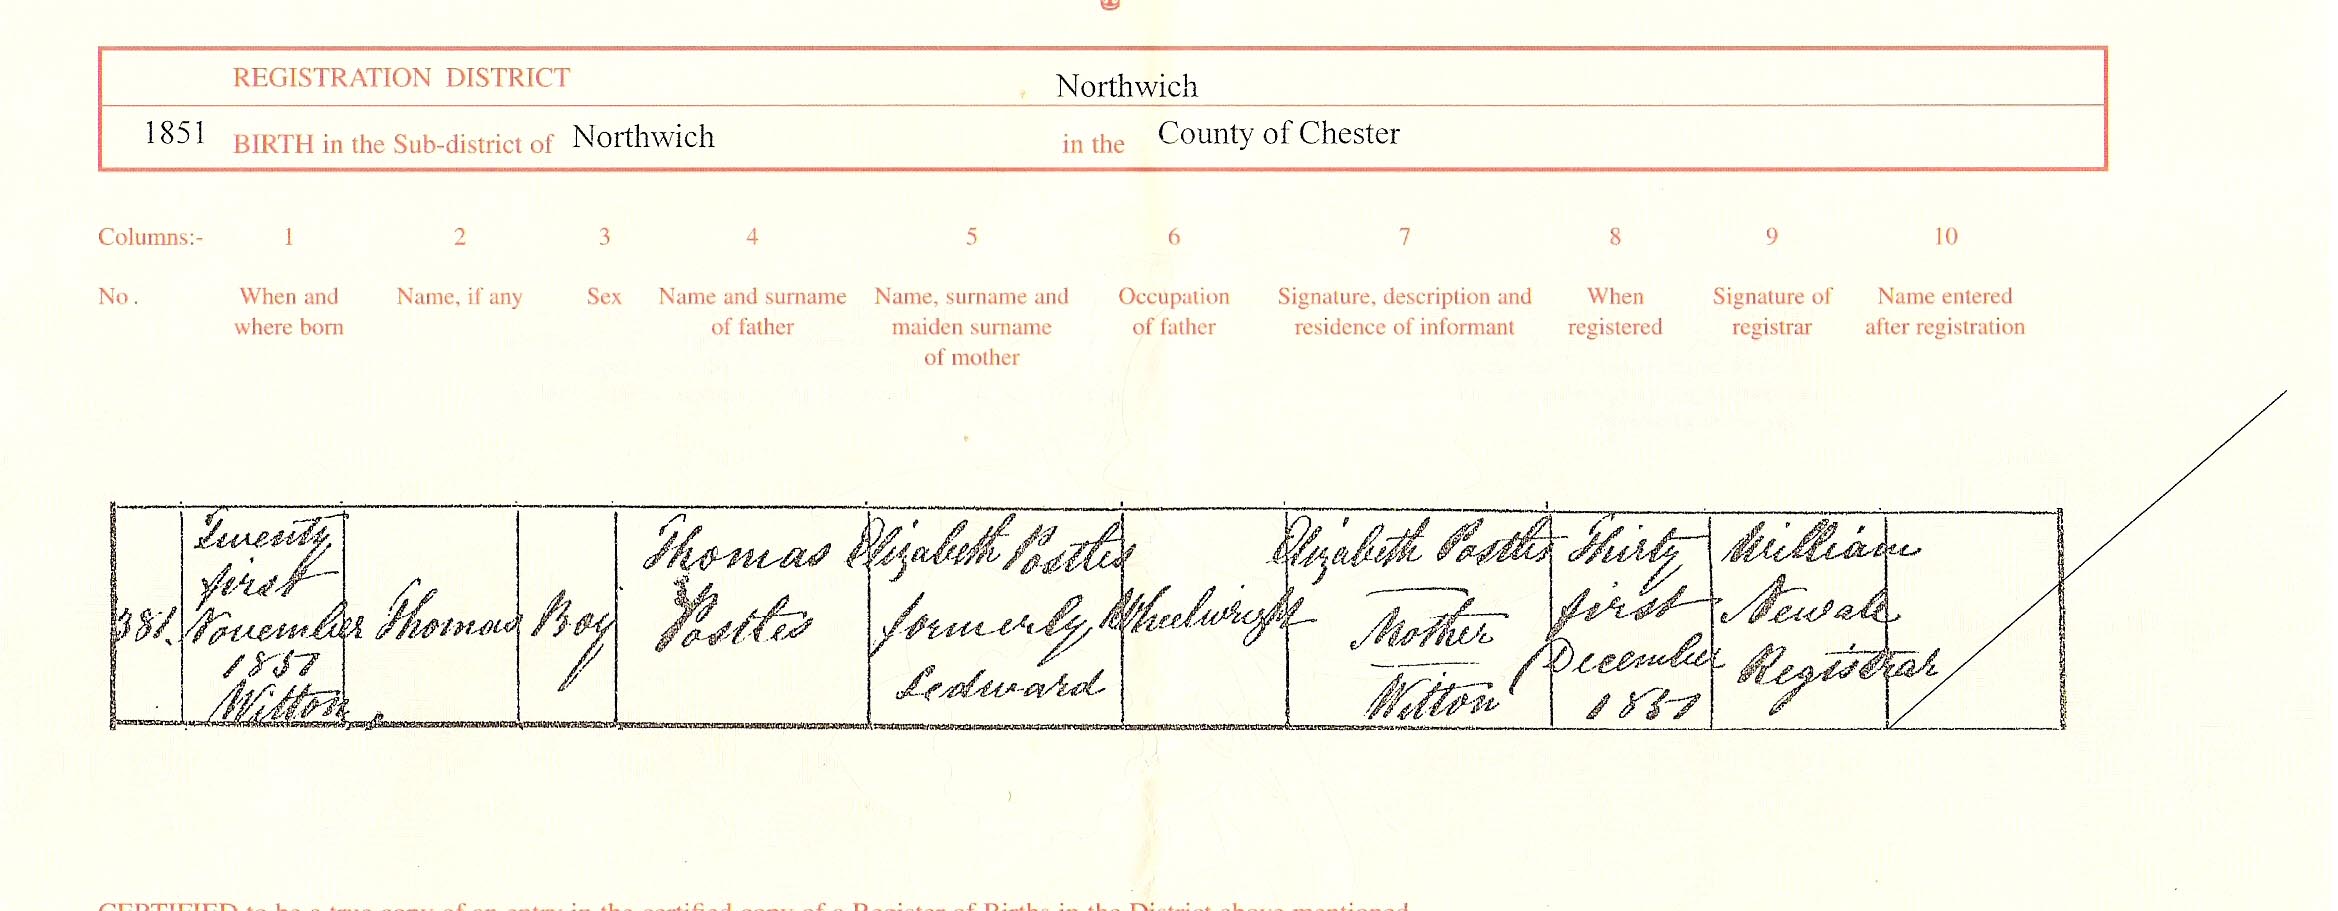 REGISTRATION DISTRICT Northwich
1851 BIRTH in the Sub-district of Northwich in the County of Chester
Columns:- 1 2 3 4 5 6 7 8 9 10
No. When and where born
Name, if any
Sex
Name and surname of father
Name, surname and maiden surname of mother
Occupation of father
Signature, description and residence of informant
When registered
Signature of registrar
Name entered after registration
381.
Twenty
first
November
1851
Witton
Thomas
Boy
Thomas
Postles
Elizabeth Postles
formerly
Ledward
Wheelwright
Elizabeth Postles
Mother
Witton
Thirty
first
December
1851
William
Registrar
CERTIFIED to be a true copy of an entry in the certified copy of a Register of Births in the District above mentioned